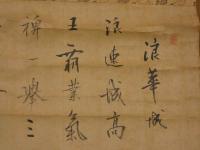 浪華城
浪速城高
王霸業氣
稗一擧三